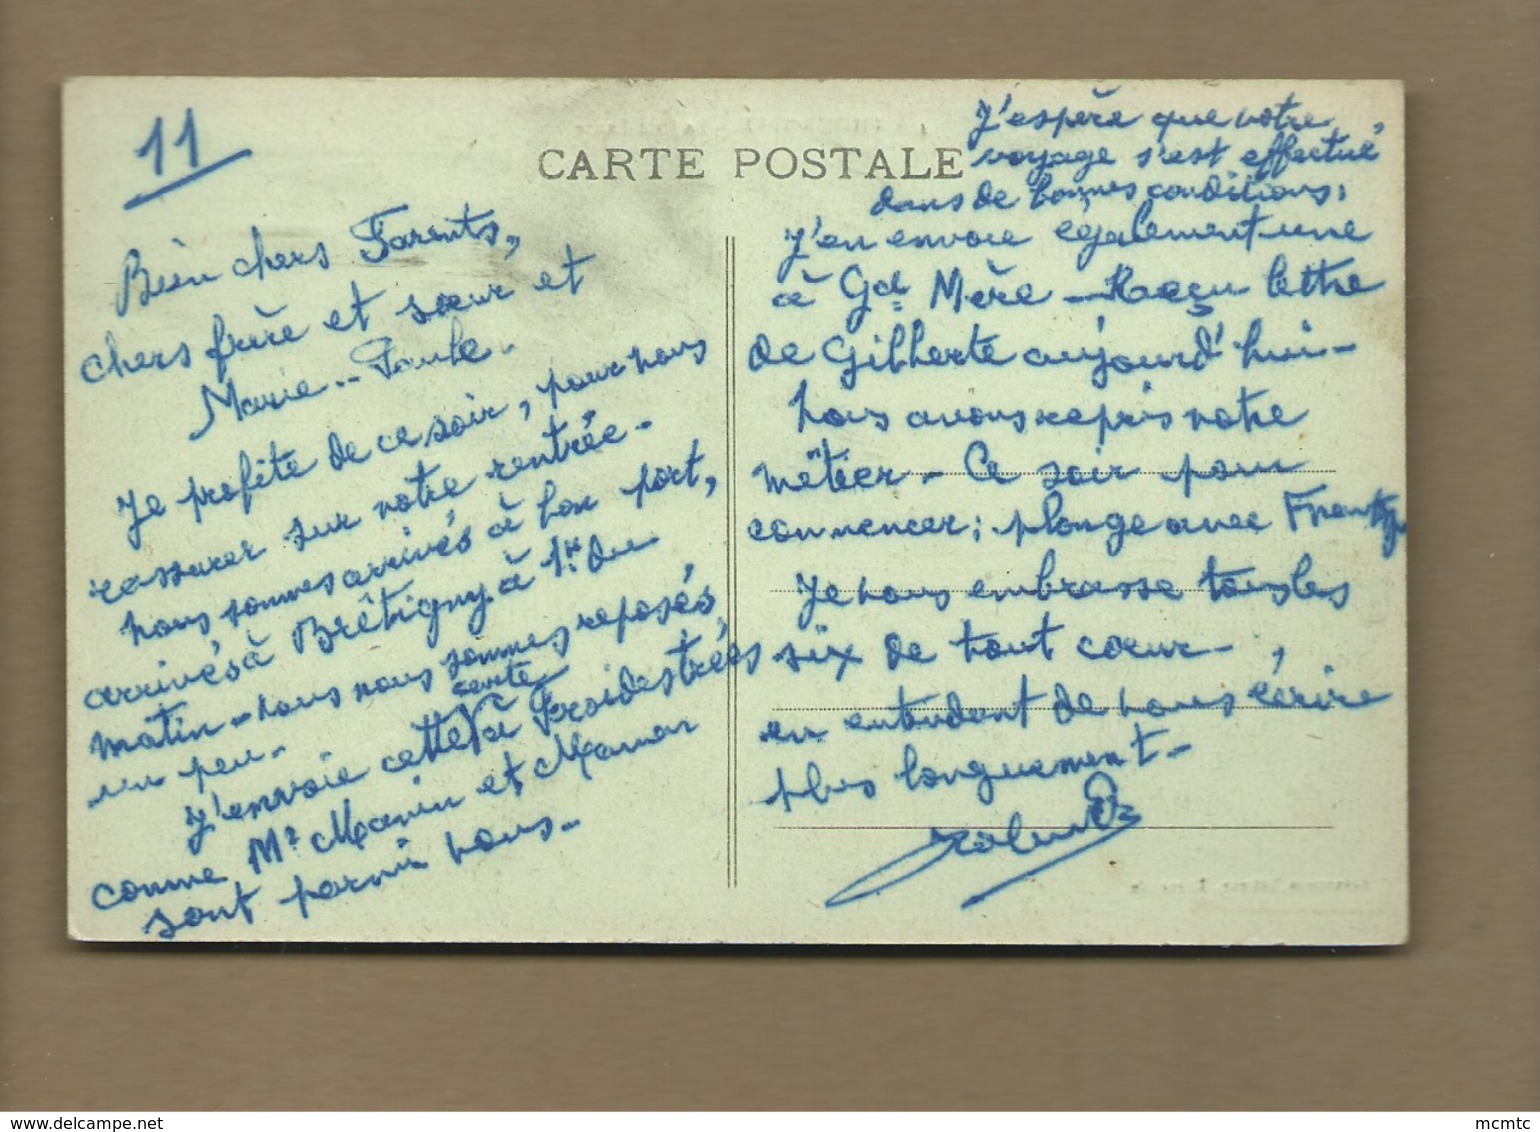 11
CARTE POSTALE
Bien chers Parents,
chers frère et sœur et
Marie-Paule.
Je profite de ce soir, pour vous
rassurer sur notre rentrée.
Nous sommes arrivés à bon port,
arrivés à Brétigny à 1h. du
matin - nous nous sommes reposés
un peu.
J'envoie cette carte à Froidestrées
comme Mr Marin et Maman
sont parmi vous.
J'espère que votre
voyage s'est effectué
dans de bonnes conditions,
J'en envoie également une
à Gd Mère - Reçu lettre
de Gilberte aujourd'hui -
Nous avons repris notre
métier - Ce soir pour
commencer; plonge avec
Je vous embrasse tous les
six de tout cœur,
en entendent de vous écrire
plus longuement -
mcmtc